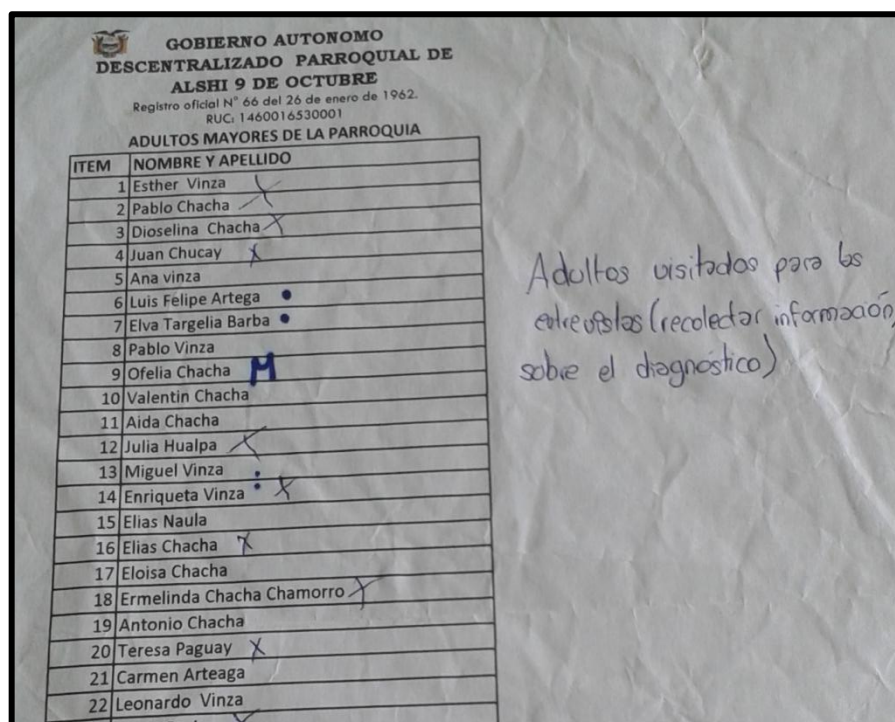 GOBIERNO AUTONOMO
DESCENTRALIZADO PARROQUIAL DE
ALSHI 9 DE OCTUBRE
Registro oficial N° 66 del 26 de enero de 1962.
RUC: 1460016530001
ADULTOS MAYORES DE LA PARROQUIA
ITEM NOMBRE Y APELLIDO
1 Esther Vinza
2 Pablo Chacha
3 Dioselina Chacha X
4 Juan Chucay X
5 Ana vinza
6 Luis Felipe Artega •
7 Elva Targelia Barba •
8 Pablo Vinza
9 Ofelia Chacha M
10 Valentin Chacha
11 Aida Chacha
12 Julia Hualpa X
13 Miguel Vinza
14 Enriqueta Vinza X
15 Elias Naula
16 Elias Chacha X
17 Eloisa Chacha
18 Ermelinda Chacha Chamorro X
19 Antonio Chacha
20 Teresa Paguay X
21 Carmen Arteaga
22 Leonardo Vinza
Adultos visitados para las
entrevistas (recolectar información
sobre el diagnóstico)